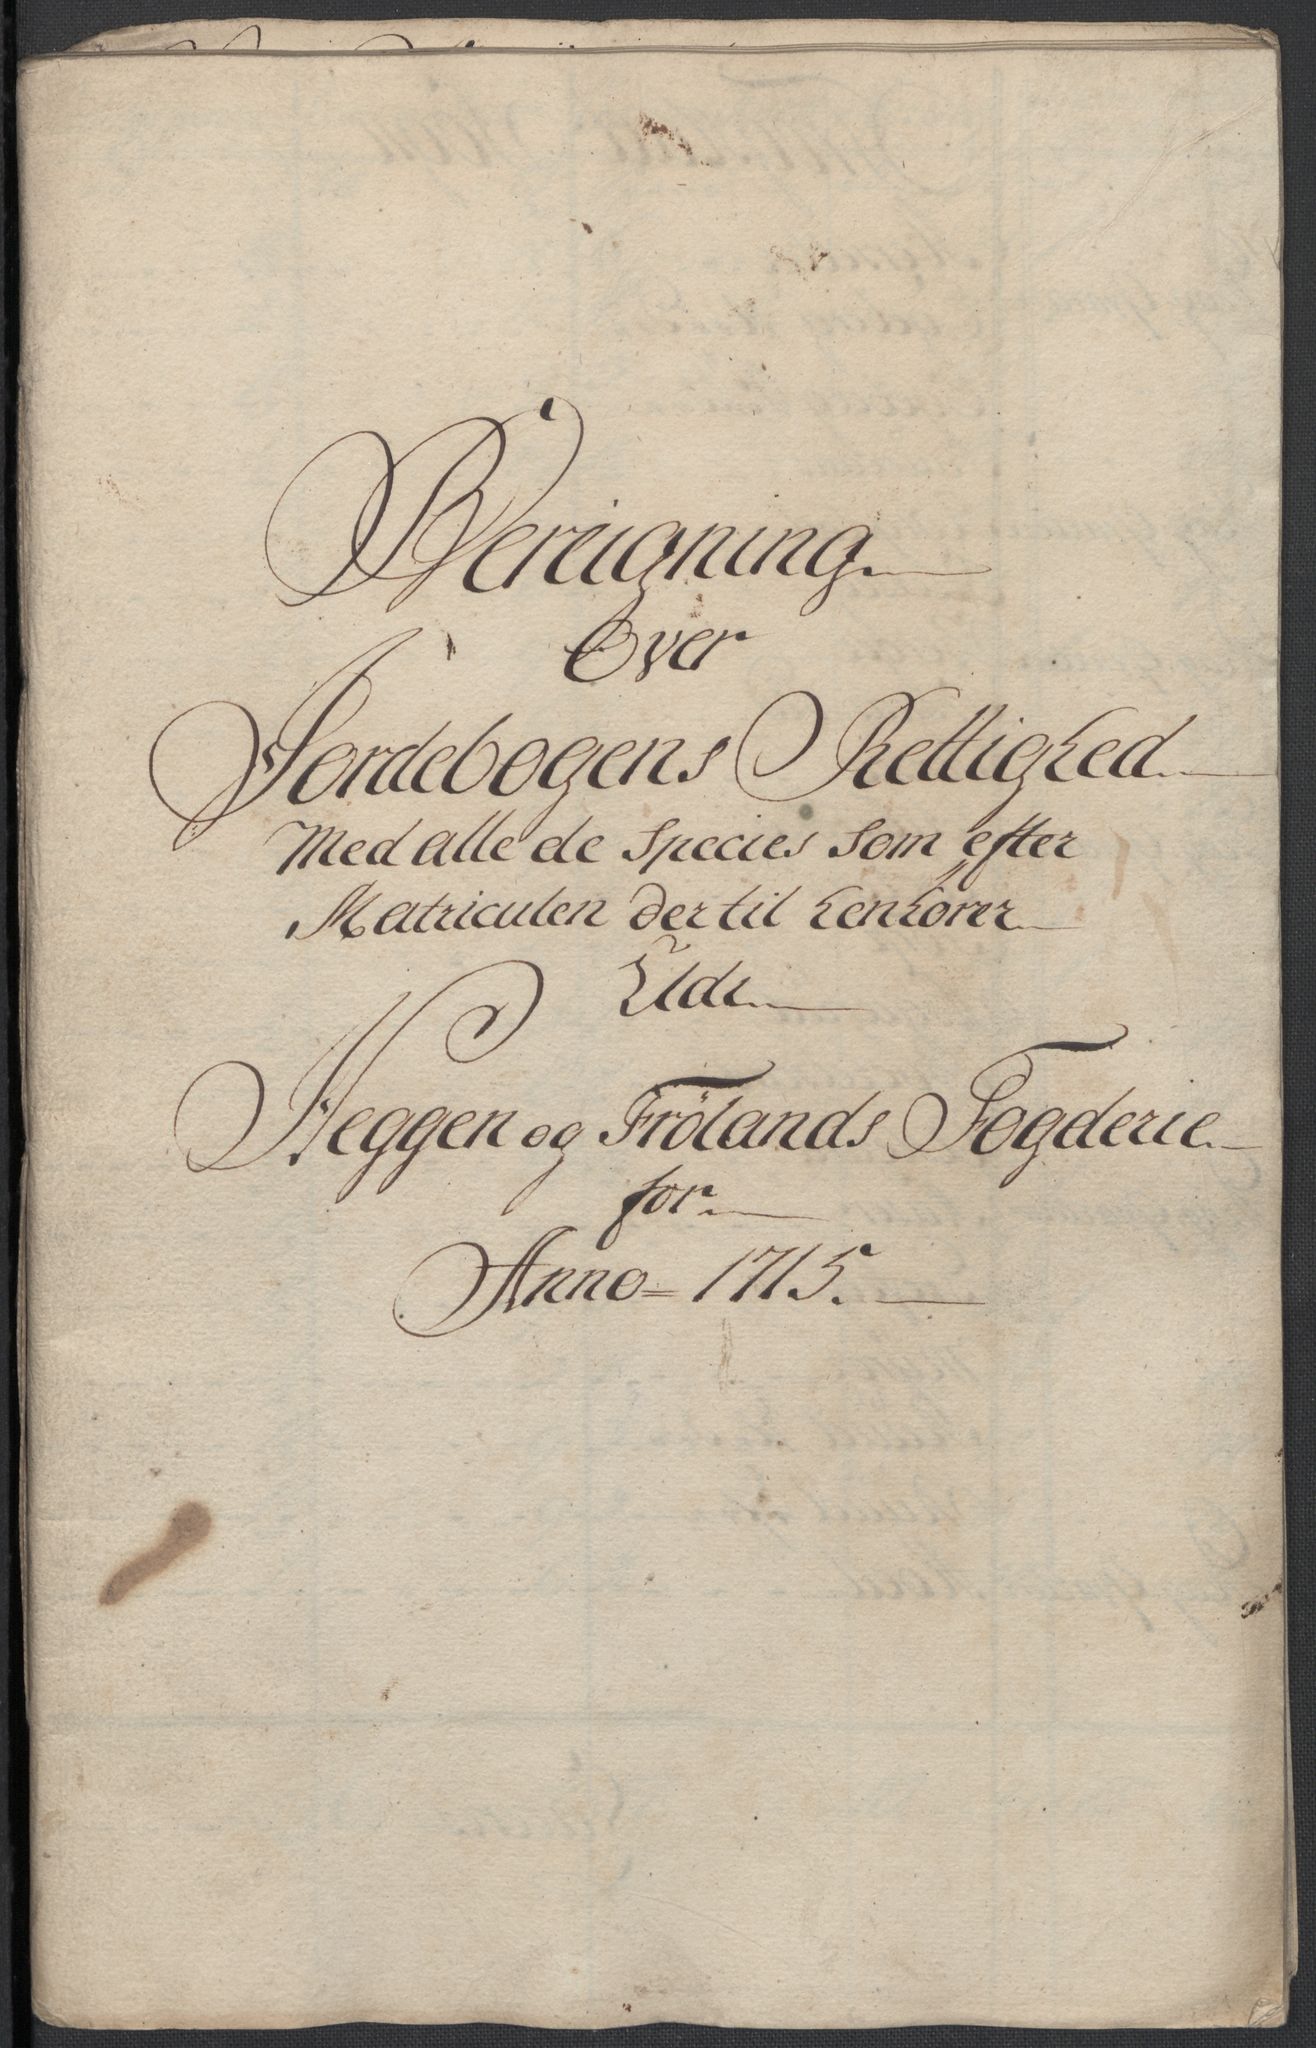 Bereigning
Over
Jordebogens Rettighed
Med alle de Species Som efter
Matriculen der til henhörer
Udi
Heggen og Frölands Fogderie
for
Anno 1715.